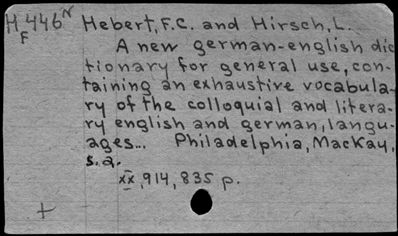 H 446 N Hebert, F.C. and Hirsch, L.
F A new german-english dic
tionary for general use, con-
taining an exhaustive vocabula-
ry of the colloquial and litera-
ry english and german, langu-
ages... Philadelphia, MacKay,
s.a.
xx, 914, 835 p.